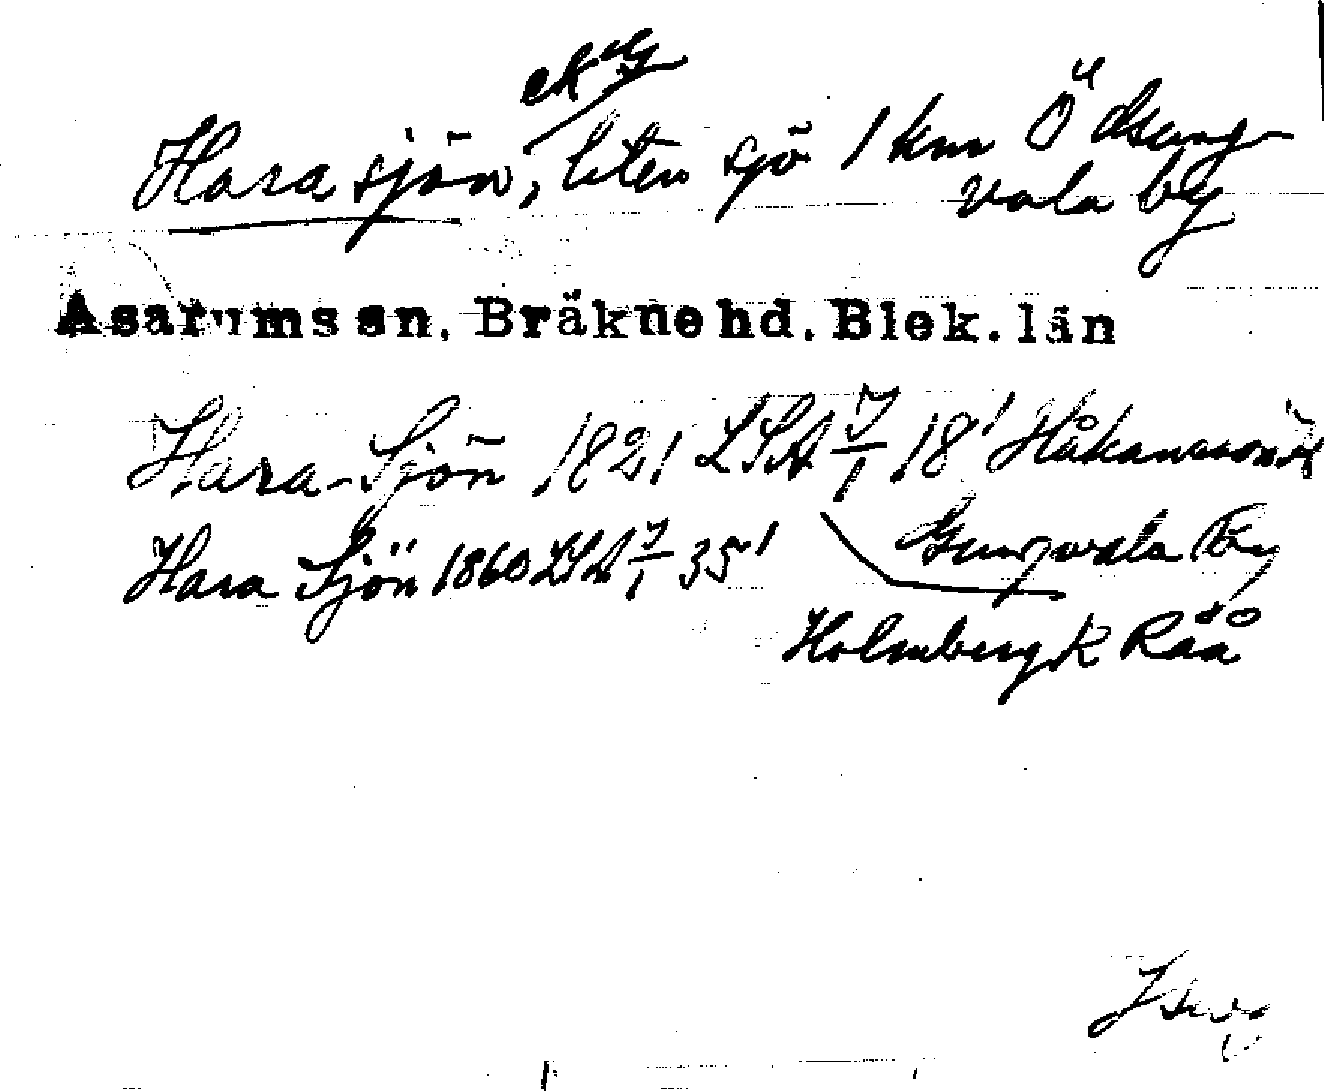 ekG
Harasjön, liten sjö 1 km Ö
vala by
Asarums sn. Bräkne hd. Blek. län
Hara-Sjön 1821 LSA 7/1 18' Håkansson
Gungvala By
Hara Sjön 1860 LSA 7/1 35'
Holmberg K Råå